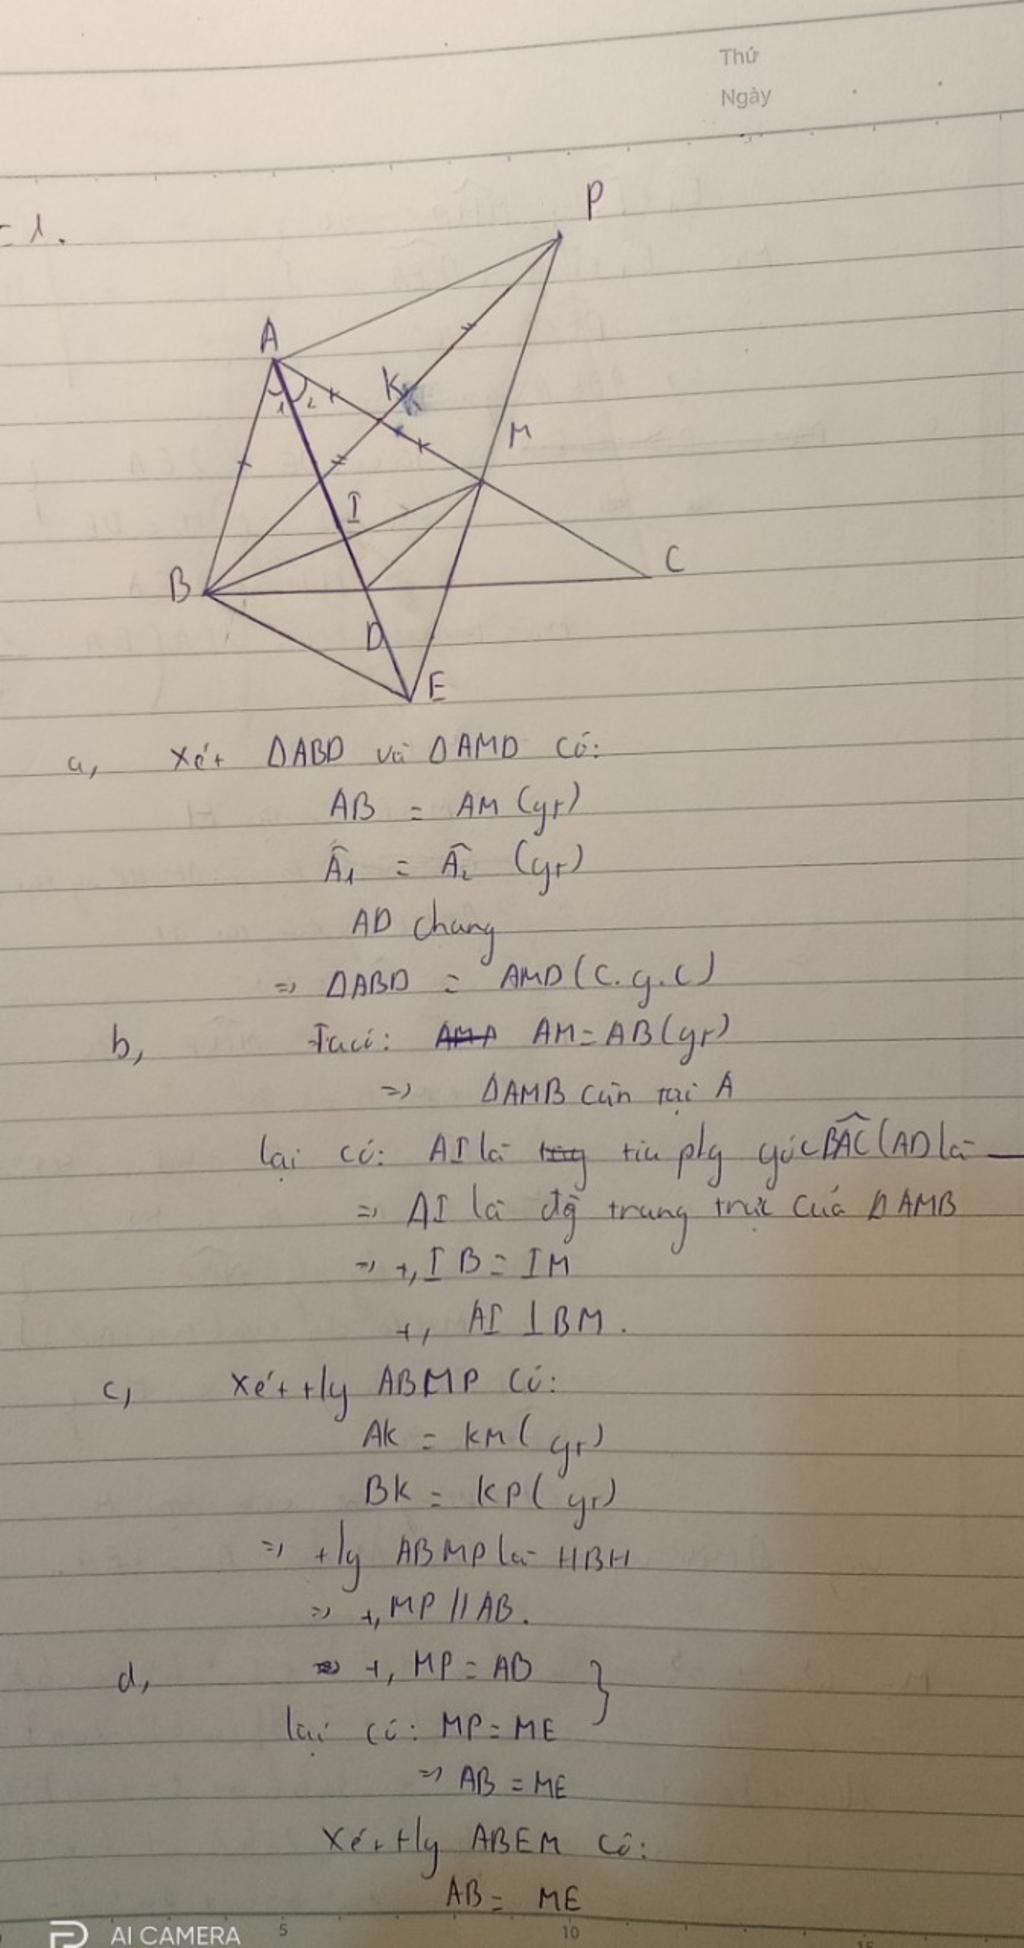 Thứ
Ngày
1.
P
A
K
1 2
M
I
B
C
D
E
a, Xét ΔABD và ΔAMD có:
AB = AM (gt)
Â1 = Â2 (gt)
AD chung
=> ΔABD = AMD (C.g.C)
b, Ta có: AM = AB (gt)
=> ΔAMB cân tại A
lại có: AI là tia p/g góc BAC (AD là
=> AI là đg trung trực của ΔAMB
=> +, IB = IM
+, AI ⊥ BM.
c, Xét t/g ABMP có:
AK = KM (gt)
BK = KP (gt)
=> t/g ABMP là HBH
=> +, MP // AB.
d, => +, MP = AB }
lại có: MP = ME
=> AB = ME
Xét t/g ABEM có:
AB = ME
AI CAMERA
5 10 15